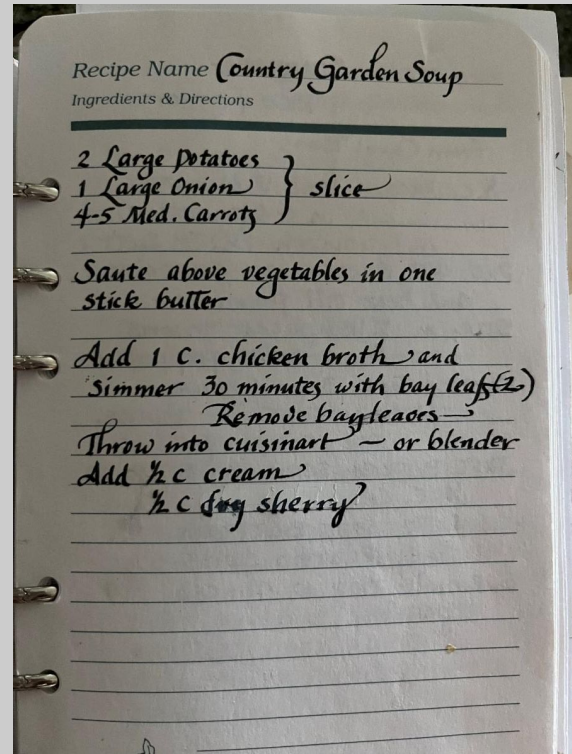 Recipe Name Country Garden Soup
Ingredients & Directions
2 Large Potatoes
1 Large Onion } slice
4-5 Med. Carrots
Saute above vegetables in one
stick butter
Add 1 C. chicken broth and
Simmer 30 minutes with bay leaf (2)
Remove bayleaves
Throw into cuisinart – or blender
Add ½ c cream
½ c dry sherry